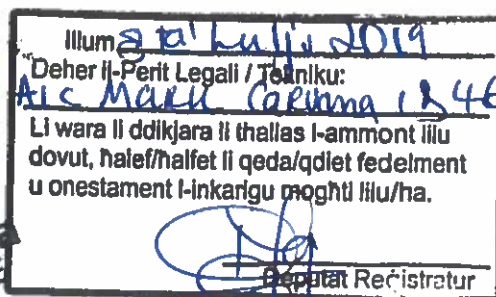 Illum 9 ta' Lulju 2019
Deher il-Perit Legali / Tekniku:
AIC Mark Caruana
Li wara li ddikjara li thallas l-ammont lilu
dovut, ħalef/ħalfet li qeda/qdiet fedelment
u onestament l-inkarigu mogħti lilu/ha.
Deputat Reġistratur